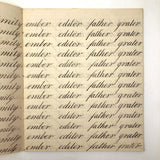 mily ember editor father grater
mily ember editor father grater
mily ember editor father grater
mily ember editor father grater
mily ember editor father grater
mily ember editor father grater
ember editor father grater
ember editor father grater
ember editor father grater
ember editor father grater
ember editor father grater
ember editor father grater